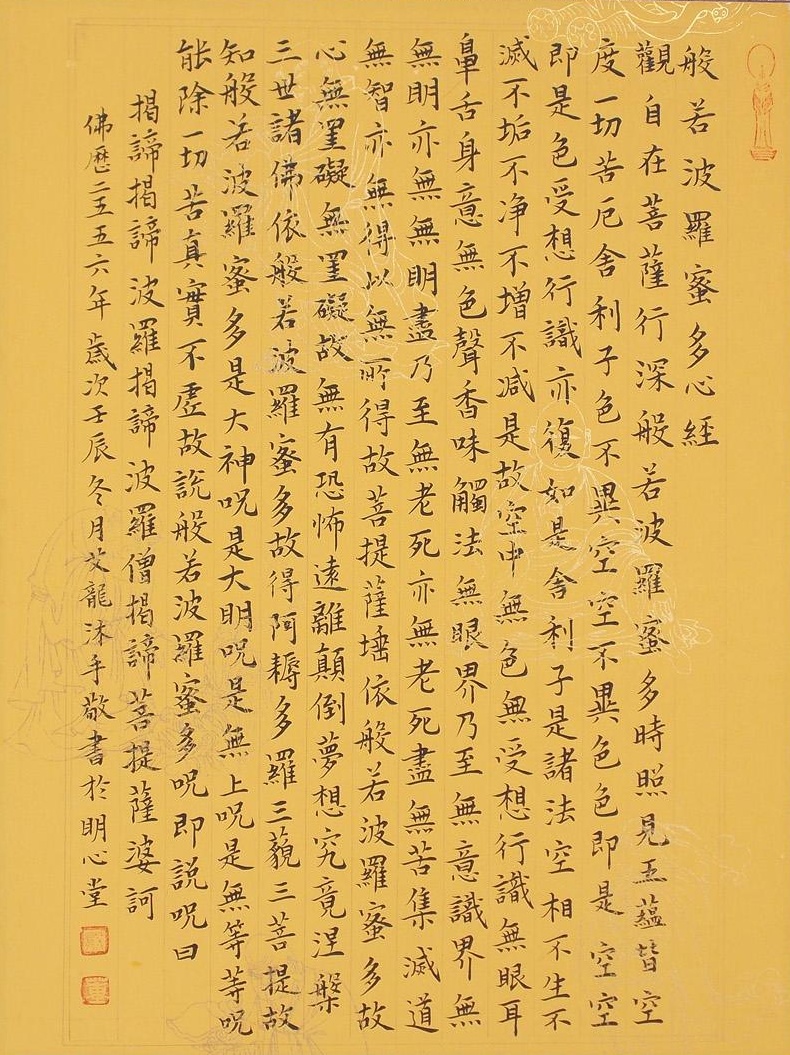 般若波羅蜜多心經
觀自在菩薩行深般若波羅蜜多時照見五蘊皆空
度一切苦厄舍利子色不異空空不異色色即是空空
即是色受想行識亦復如是舍利子是諸法空相不生不
滅不垢不净不增不减是故空中無色無受想行識無眼耳
鼻舌身意無色聲香味觸法無眼界乃至無意識界無
無明亦無無明盡乃至無老死亦無老死盡無苦集滅道
無智亦無得以無所得故菩提薩埵依般若波羅蜜多故
心無罣礙無罣礙故無有恐怖遠離顛倒夢想究竟涅槃
三世諸佛依般若波羅蜜多故得阿耨多羅三藐三菩提故
知般若波羅蜜多是大神呪是大明呪是無上呪是無等等呪
能除一切苦真實不虛故說般若波羅蜜多呪即說呪曰
揭諦揭諦波羅揭諦波羅僧揭諦菩提薩婆訶
佛曆二五五六年歲次壬辰冬月艾龍沐手敬書於明心堂